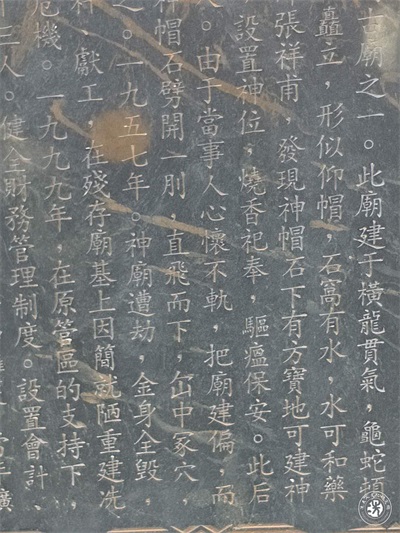 古廟之一。此廟建于橫龍貫氣，龜蛇頓
矗立，形似仰帽，石窩有水，水可和藥
張祥甫，發現神帽石下有方寶地可建神
設置神位，燒香祀奉，驅瘟保安。此后
。由于當事人心懷不軌，把廟建偏，而
神帽石劈開一刖，直飛而下，缶中冢穴，
之。一九五七年。神廟遭劫，金身全毀，
，獻工，在殘存廟基上因簡就陋重建洗
危機。一九九九年，在原管區的支持下，
三人。健全財務管理制度。設置會計、